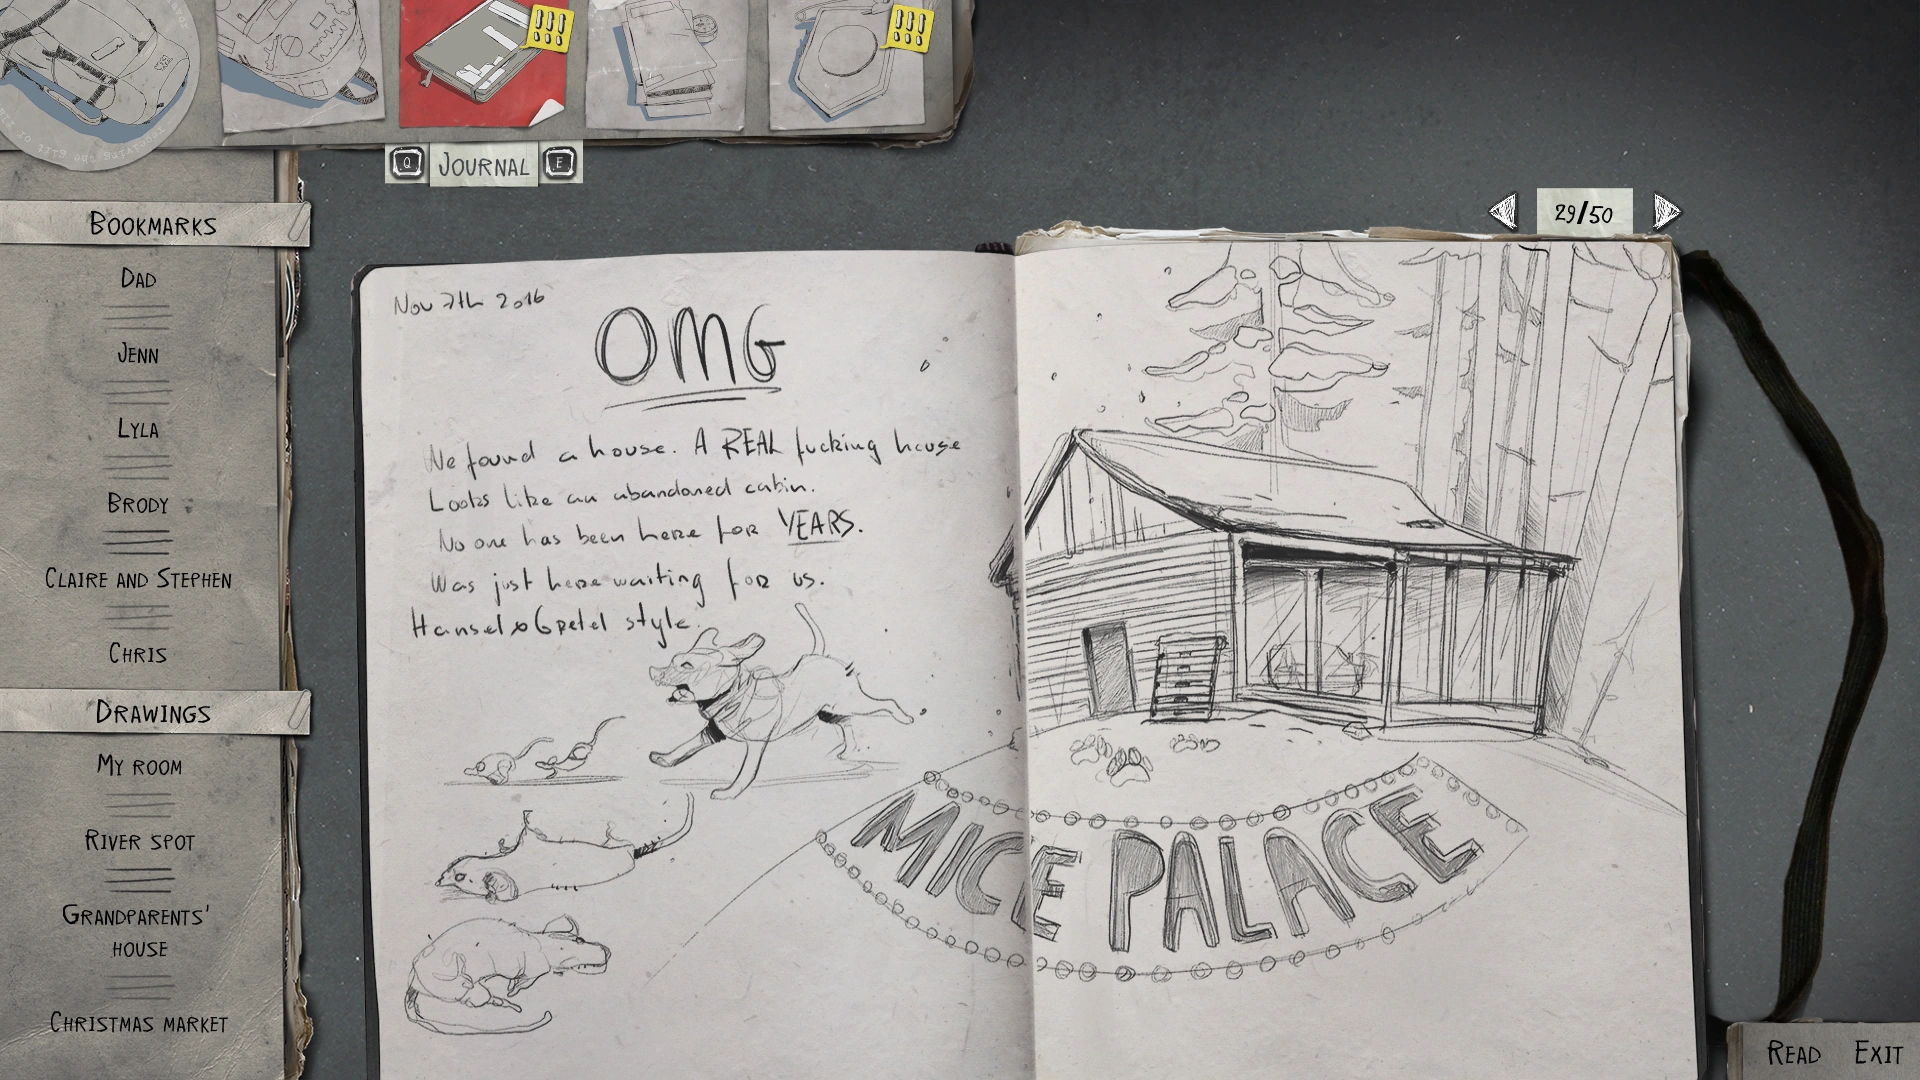 JOURNAL
Q
E
29/50
BOOKMARKS
DAD
JENN
LYLA
BRODY
CLAIRE AND STEPHEN
CHRIS
DRAWINGS
MY ROOM
RIVER SPOT
GRANDPARENTS'
HOUSE
CHRISTMAS MARKET
Nov 7th 2016
OMG
We found a house. A REAL fucking house
Looks like an abandoned cabin.
No one has been here for YEARS.
Was just here waiting for us.
Hansel & Gretel style.
MICE PALACE
READ
EXIT